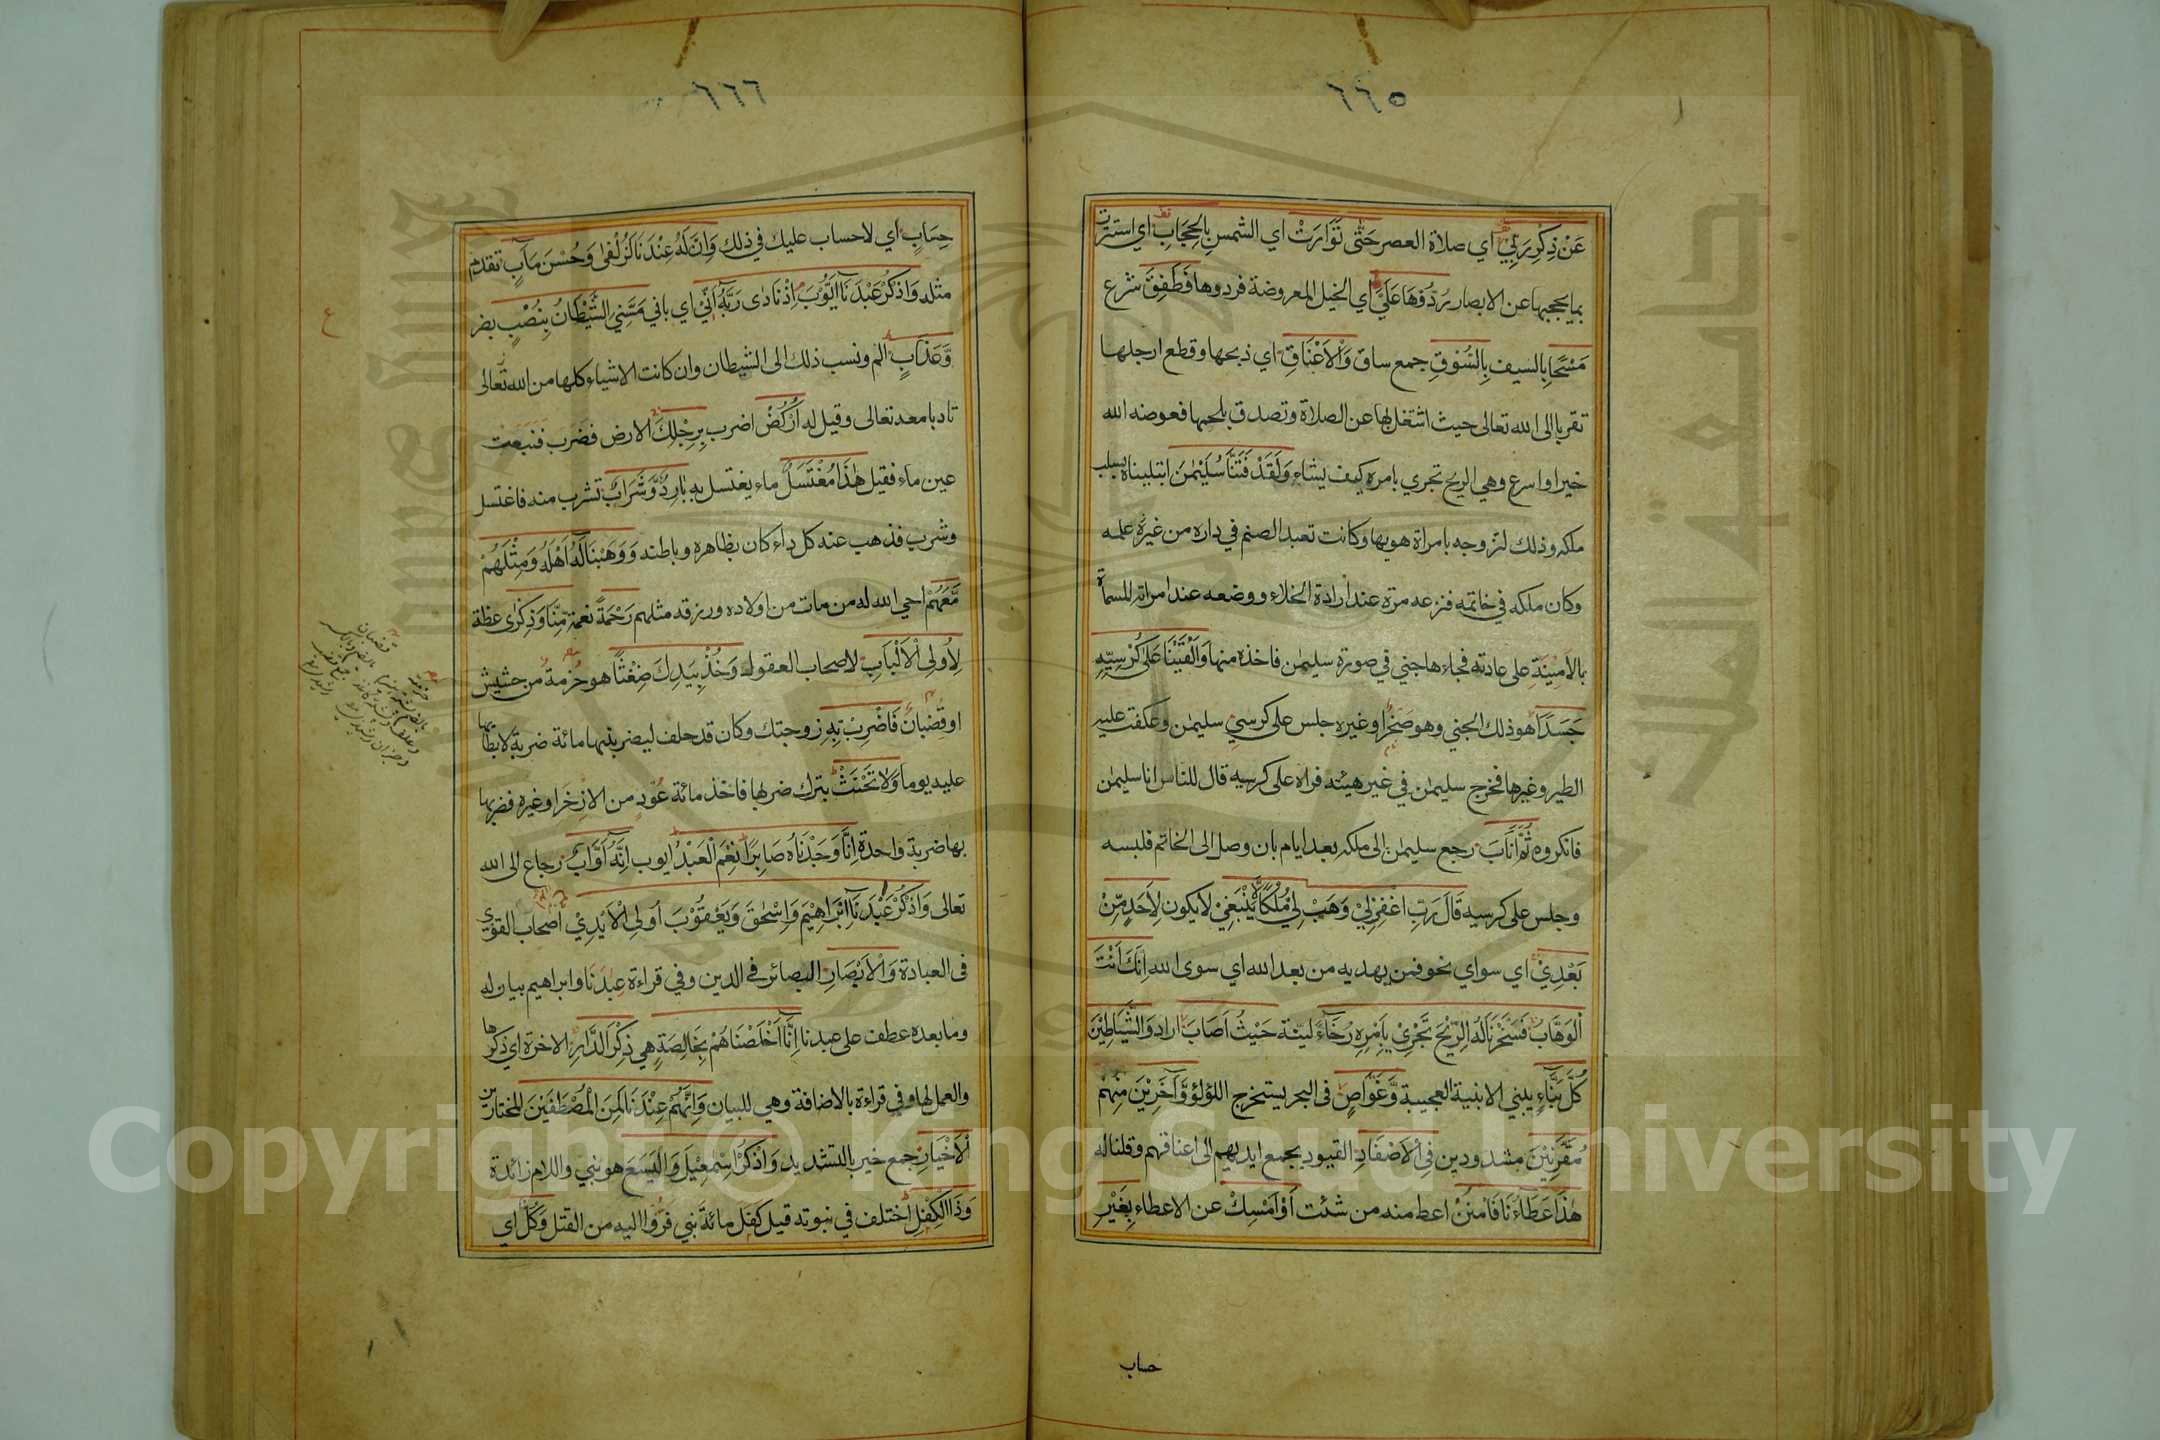 ٦٦٥
عَنْ ذِكْرِ رَبِّي اي صلاة العصر حَتّٰى تَوَارَتْ اي الشمس بِالْحِجَابِ اي استترت
بما يحجبها عن الابصار رُدُّوهَا عَلَيَّ اي الخيل المعروضة فردوها فَطَفِقَ شرع
مَسْحًا بالسيف بِالسُّوْقِ جمع ساق وَالْاَعْنَاقِ اي ذبحها وقطع ارجلها
تقربا الى الله تعالى حيث اشتغل بها عن الصلاة وتصدق بلحمها فعوضه الله
خيرا واسرع وهي الريح تجري بامره كيف يشاء وَلَقَدْ فَتَنَّا سُلَيْمٰنَ ابتليناه بسلب
ملكه وذلك لتزوجه بامراة هويها وكانت تعبد الصنم في داره من غير علمه
وكان ملكه في خاتمه فنزعه مرة عند ارادة الخلاء ووضعه عند امراته المسماة
بالامينة على عادته فجاءها جني في صورة سليمٰن فاخذه منها وَاَلْقَيْنَا عَلٰى كُرْسِيِّهٖ
جَسَدًا هو ذلك الجني وهو صخرا وغيره جلس على كرسي سليمٰن وعكفت عليه
الطير وغيرها فخرج سليمٰن في غير هيئته فراه على كرسيه قال للناس انا سليمٰن
فانكروه ثُمَّ اَنَابَ رجع سليمٰن الى ملكه بعد ايام بان وصل الى الخاتم فلبسه
وجلس على كرسيه قَالَ رَبِّ اغْفِرْلِيْ وَهَبْ لِيْ مُلْكًا لَّا يَنْبَغِيْ لا يكون لِاَحَدٍ مِّنْ
بَعْدِيْ اي سواي نحو فمن يهديه من بعد الله اي سوى الله اِنَّكَ اَنْتَ
الْوَهَّابُ فَسَخَّرْنَا لَهُ الرِّيْحَ تَجْرِيْ بِاَمْرِهٖ رُخَاءً لينة حَيْثُ اَصَابَ اراد وَالشَّيَاطِيْنَ
كُلَّ بَنَّاءٍ يبني الابنية العجيبة وَّغَوَّاصٍ في البحر يستخرج اللؤلؤ وَّاٰخَرِيْنَ مِنْهُمْ
مُقَرَّنِيْنَ مشدودين فِي الْاَصْفَادِ القيود بجمع ايديهم الى اعناقهم وقلنا له
هٰذَا عَطَاؤُنَا فَامْنُنْ اعط منه من شئت اَوْ اَمْسِكْ عن الاعطاء بِغَيْرِ
حساب
٦٦٦
حِسَابٍ اي لا حساب عليك في ذلك وَاِنَّ لَهٗ عِنْدَنَا لَزُلْفٰى وَحُسْنَ مَاٰبٍ تقدم
مثله وَاذْكُرْ عَبْدَنَا اَيُّوْبَ اِذْ نَادٰى رَبَّهٗ اَنِّيْ اي باني مَسَّنِيَ الشَّيْطَانُ بِنُصْبٍ بضر
وَّعَذَابٍ الم ونسب ذلك الى الشيطان وان كانت الاشياء كلها من الله تعالى
تادبا معه تعالى وقيل له اُرْكُضْ اضرب بِرِجْلِكَ الارض فضرب فنبعت
عين ماء فقيل هٰذَا مُغْتَسَلٌ ماء يغتسل به بَارِدٌ وَّشَرَابٌ تشرب منه فاغتسل
وشرب فذهب عنه كل داء كان بظاهره وباطنه وَوَهَبْنَا لَهٗ اَهْلَهٗ وَمِثْلَهُمْ
مَّعَهُمْ احي الله له من مات من اولاده ورزقه مثلهم رَحْمَةً نعمة مِّنَّا وَذِكْرٰى عظة
لِاُولِي الْاَلْبَابِ لاصحاب العقول وَخُذْ بِيَدِكَ ضِغْثًا هو حُزمة من حشيش
او قُضْبان فَاضْرِبْ بِّهٖ زوجتك وكان قد حلف ليضربنها مائة ضربة لابطائها
عليه يوما وَلَا تَحْنَثْ بترك ضربها فاخذ مائة عُود من الاذخر او غيره فضربها
بها ضربة واحدة اِنَّا وَجَدْنَاهُ صَابِرًا نِعْمَ الْعَبْدُ ايوب اِنَّهٗ اَوَّابٌ رجاع الى الله
تعالى وَاذْكُرْ عَبْدَنَا اِبْرَاهِيْمَ وَاِسْحٰقَ وَيَعْقُوْبَ اُولِي الْاَيْدِيْ اصحاب القوي
في العبادة وَالْاَبْصَارِ البصائر في الدين وفي قراءة عَبْدَنَا وابراهيم بيان له
وما بعده عطف على عبدنا اِنَّا اَخْلَصْنَاهُمْ بِخَالِصَةٍ هي ذِكْرَى الدَّارِ الاخرة اي ذكرها
والعمل لها وفي قراءة بالاضافة وهي للبيان وَاِنَّهُمْ عِنْدَنَا لَمِنَ الْمُصْطَفَيْنَ المختارين
الْاَخْيَارِ جمع خير بالتشديد وَاذْكُرْ اِسْمٰعِيْلَ وَالْيَسَعَ هو نبي واللام زائدة
وَذَا الْكِفْلِ اختلف في نبوته قيل كفل مائة نبي فروا اليه من القتل وَكُلٌّ اي
ع
Copyright © King Saud University